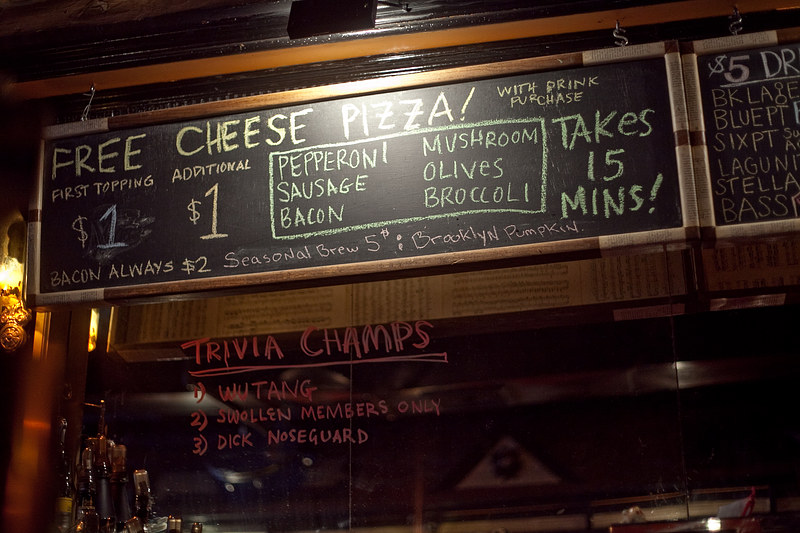 FREE CHEESE PIZZA!
WITH DRINK
PURCHASE
FIRST TOPPING
$1
ADDITIONAL
$1
PEPPERONI
SAUSAGE
BACON
MUSHROOM
OLIVES
BROCCOLI
TAKES
15
MINS!
BACON ALWAYS $2
Seasonal Brew 5$ : Brooklyn Pumpkin.
$5 DR
BK LAGE
BLUEPT
SIXPT
LAGUNI
STELLA
BASS
TRIVIA CHAMPS
1) WUTANG
2) SWOLLEN MEMBERS ONLY
3) DICK NOSEGUARD